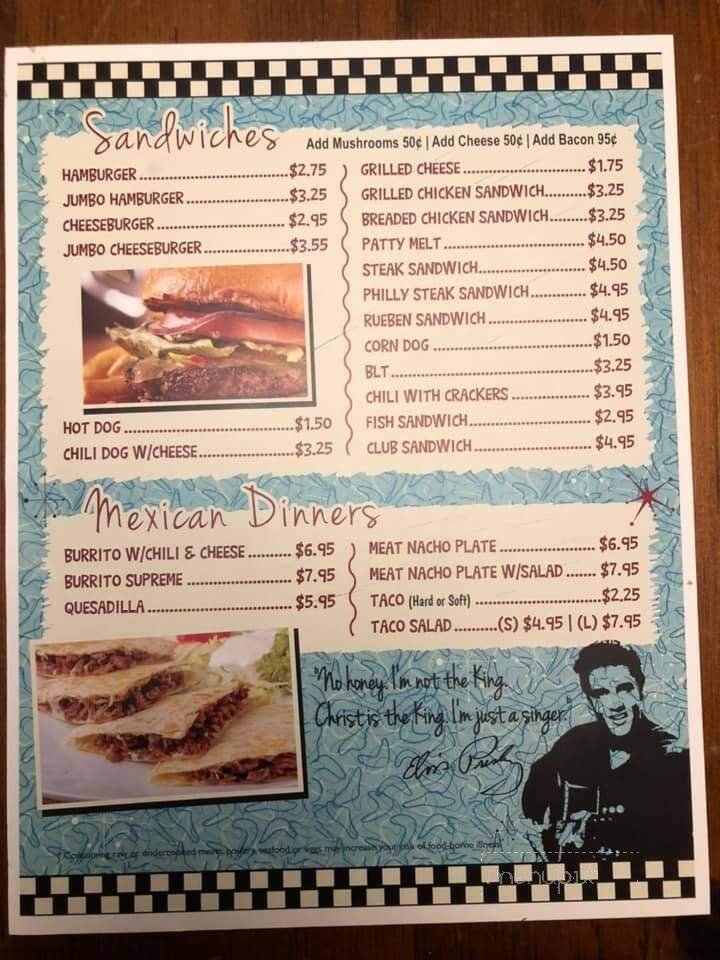 Sandwiches
Add Mushrooms 50¢ | Add Cheese 50¢ | Add Bacon 95¢
HAMBURGER $2.75
JUMBO HAMBURGER $3.25
CHEESEBURGER $2.95
JUMBO CHEESEBURGER $3.55
HOT DOG $1.50
CHILI DOG W/CHEESE $3.25
GRILLED CHEESE $1.75
GRILLED CHICKEN SANDWICH $3.25
BREADED CHICKEN SANDWICH $3.25
PATTY MELT $4.50
STEAK SANDWICH $4.50
PHILLY STEAK SANDWICH $4.95
RUEBEN SANDWICH $4.95
CORN DOG $1.50
BLT $3.25
CHILI WITH CRACKERS $3.95
FISH SANDWICH $2.95
CLUB SANDWICH $4.95
Mexican Dinners
BURRITO W/CHILI & CHEESE $6.95
BURRITO SUPREME $7.95
QUESADILLA $5.95
MEAT NACHO PLATE $6.95
MEAT NACHO PLATE W/SALAD $7.95
TACO (Hard or Soft) $2.25
TACO SALAD (S) $4.95 | (L) $7.95
"No honey. I'm not the King.
Christ is the King. I'm just a singer."
Elvis Presley
* Consuming raw or undercooked meats, poultry, seafood or eggs may increase your risk of food-borne illness
menupix